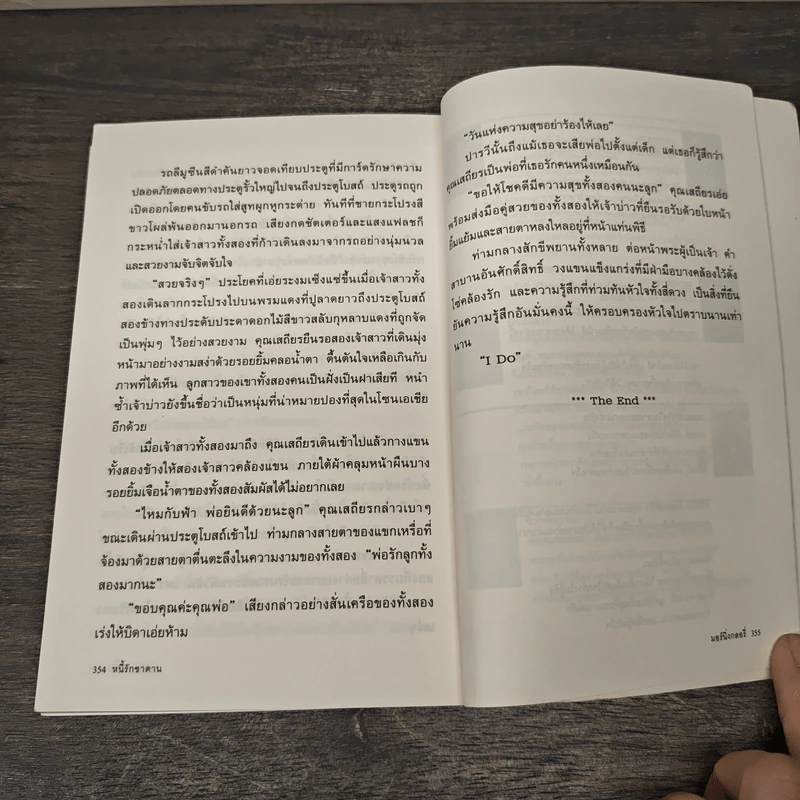 รถลีมูซีนสีดำคันยาวจอดเทียบประตูที่มีการ์ดรักษาความ
ปลอดภัยตลอดทางประตูรั้วใหญ่ไปจนถึงประตูโบสถ์ ประตูรถถูก
เปิดออกโดยคนขับรถใส่สูทผูกหูกระต่าย ทันทีที่ชายกระโปรงสี
ขาวโผล่พ้นออกมานอกรถ เสียงกดชัตเตอร์และแสงแฟลชก็
กระหน่ำใส่เจ้าสาวทั้งสองที่ก้าวเดินลงมาจากรถอย่างนุ่มนวล
และสวยงามจับจิตจับใจ
“สวยจริงๆ” ประโยคที่เอ่ยระงมเซ็งแซ่ขึ้นเมื่อเจ้าสาวทั้ง
สองเดินลากกระโปรงไปบนพรมแดงที่ปูลาดยาวถึงประตูโบสถ์
สองข้างทางประดับประดาดอกไม้สีขาวสลับกุหลาบแดงที่ถูกจัด
เป็นพุ่มๆ ไว้อย่างสวยงาม คุณเสถียรยืนรอสองเจ้าสาวที่เดินมุ่ง
หน้ามาอย่างงามสง่าด้วยรอยยิ้มคลอน้ำตา ตื้นตันใจเหลือเกินกับ
ภาพที่ได้เห็น ลูกสาวของเขาทั้งสองคนเป็นฝั่งเป็นฝาเสียที หนำ
ซ้ำเจ้าบ่าวยังขึ้นชื่อว่าเป็นหนุ่มที่น่าหมายปองที่สุดในโซนเอเชีย
อีกด้วย
เมื่อเจ้าสาวทั้งสองมาถึง คุณเสถียรเดินเข้าไปแล้วกางแขน
ทั้งสองข้างให้สองเจ้าสาวคล้องแขน ภายใต้ผ้าคลุมหน้าผืนบาง
รอยยิ้มเจือน้ำตาของทั้งสองสัมผัสได้ไม่อยากเลย
“ไหมกับฟ้า พ่อยินดีด้วยนะลูก” คุณเสถียรกล่าวเบาๆ
ขณะเดินผ่านประตูโบสถ์เข้าไป ท่ามกลางสายตาของแขกเหรื่อที่
จ้องมาด้วยสายตาตื่นตะลึงในความงามของทั้งสอง “พ่อรักลูกทั้ง
สองมากนะ”
“ขอบคุณค่ะคุณพ่อ” เสียงกล่าวอย่างสั่นเครือของทั้งสอง
เร่งให้บิดาเอ่ยห้าม
354 หนี้รักซาตาน
“วันแห่งความสุขอย่าร้องไห้เลย”
ปารวีนั้นถึงแม้เธอจะเสียพ่อไปตั้งแต่เด็ก แต่เธอก็รู้สึกว่า
คุณเสถียรเป็นพ่อที่เธอรักคนหนึ่งเหมือนกัน
“ขอให้โชคดีมีความสุขทั้งสองคนนะลูก” คุณเสถียรเอ่ย
พร้อมส่งมือคู่สวยของทั้งสองให้เจ้าบ่าวที่ยืนรอรับด้วยใบหน้า
ยิ้มแย้มและสายตาหลงใหลอยู่ที่หน้าแท่นพิธี
ท่ามกลางสักขีพยานทั้งหลาย ต่อหน้าพระผู้เป็นเจ้า คำ
สาบานอันศักดิ์สิทธิ์ วงแขนแข็งแกร่งที่มีฝ่ามือบางคล้องไว้ดั่ง
โซ่คล้องรัก และความรู้สึกที่ท่วมท้นหัวใจทั้งสี่ดวง เป็นสิ่งที่ยืน
ยันความรู้สึกอันมั่นคงนี้ ให้ครอบครองหัวใจไปตราบนานเท่า
นาน
“I Do”
*** The End ***
มอร์นิ่งกลอรี่ 355